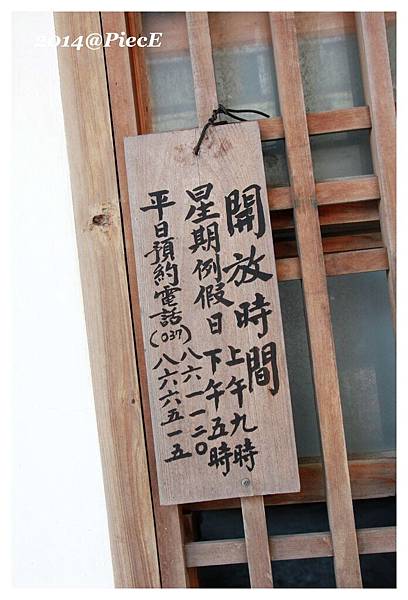 2014@PiecE
開放時間 上午九時
星期例假日 下午五時
平日預約電話(037) 八六一一二〇
八六六五一五